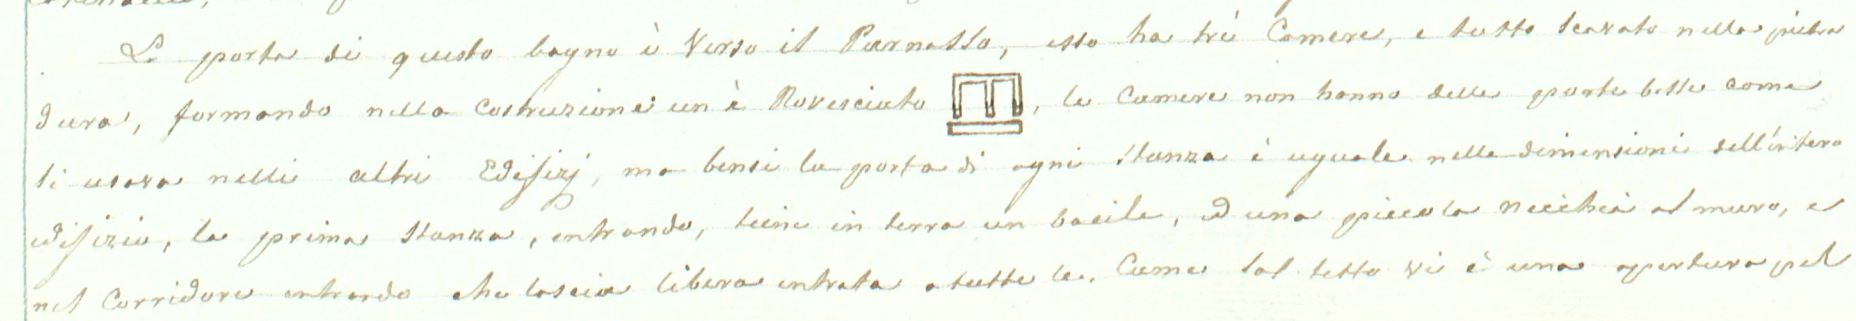 La porta di questo bagno è Verso il Parnasso, esso ha trè Camere, e tutto scavato nella pietra
dura, formando nella Costruzione un è Rovesciato , le Camere non hanno delle porte belle come
si usava nelli altri Edifizj, ma bensi la porta di ogni Stanza è uguale nelle dimensioni dell'intero
edifizio, la prima Stanza, entrando, tiene in terra un bacile, ed una piccola nicchia al muro, e
nel Corridore entrando che lascia libera entrata a tutte le Came sul tetto vi è una apertura pel